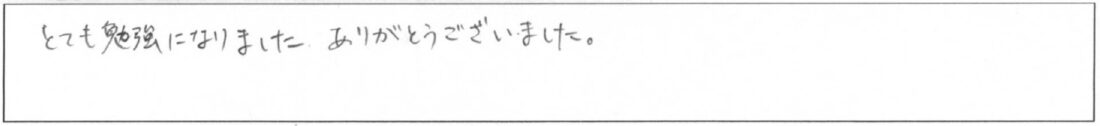 とても勉強になりました ありがとうございました。